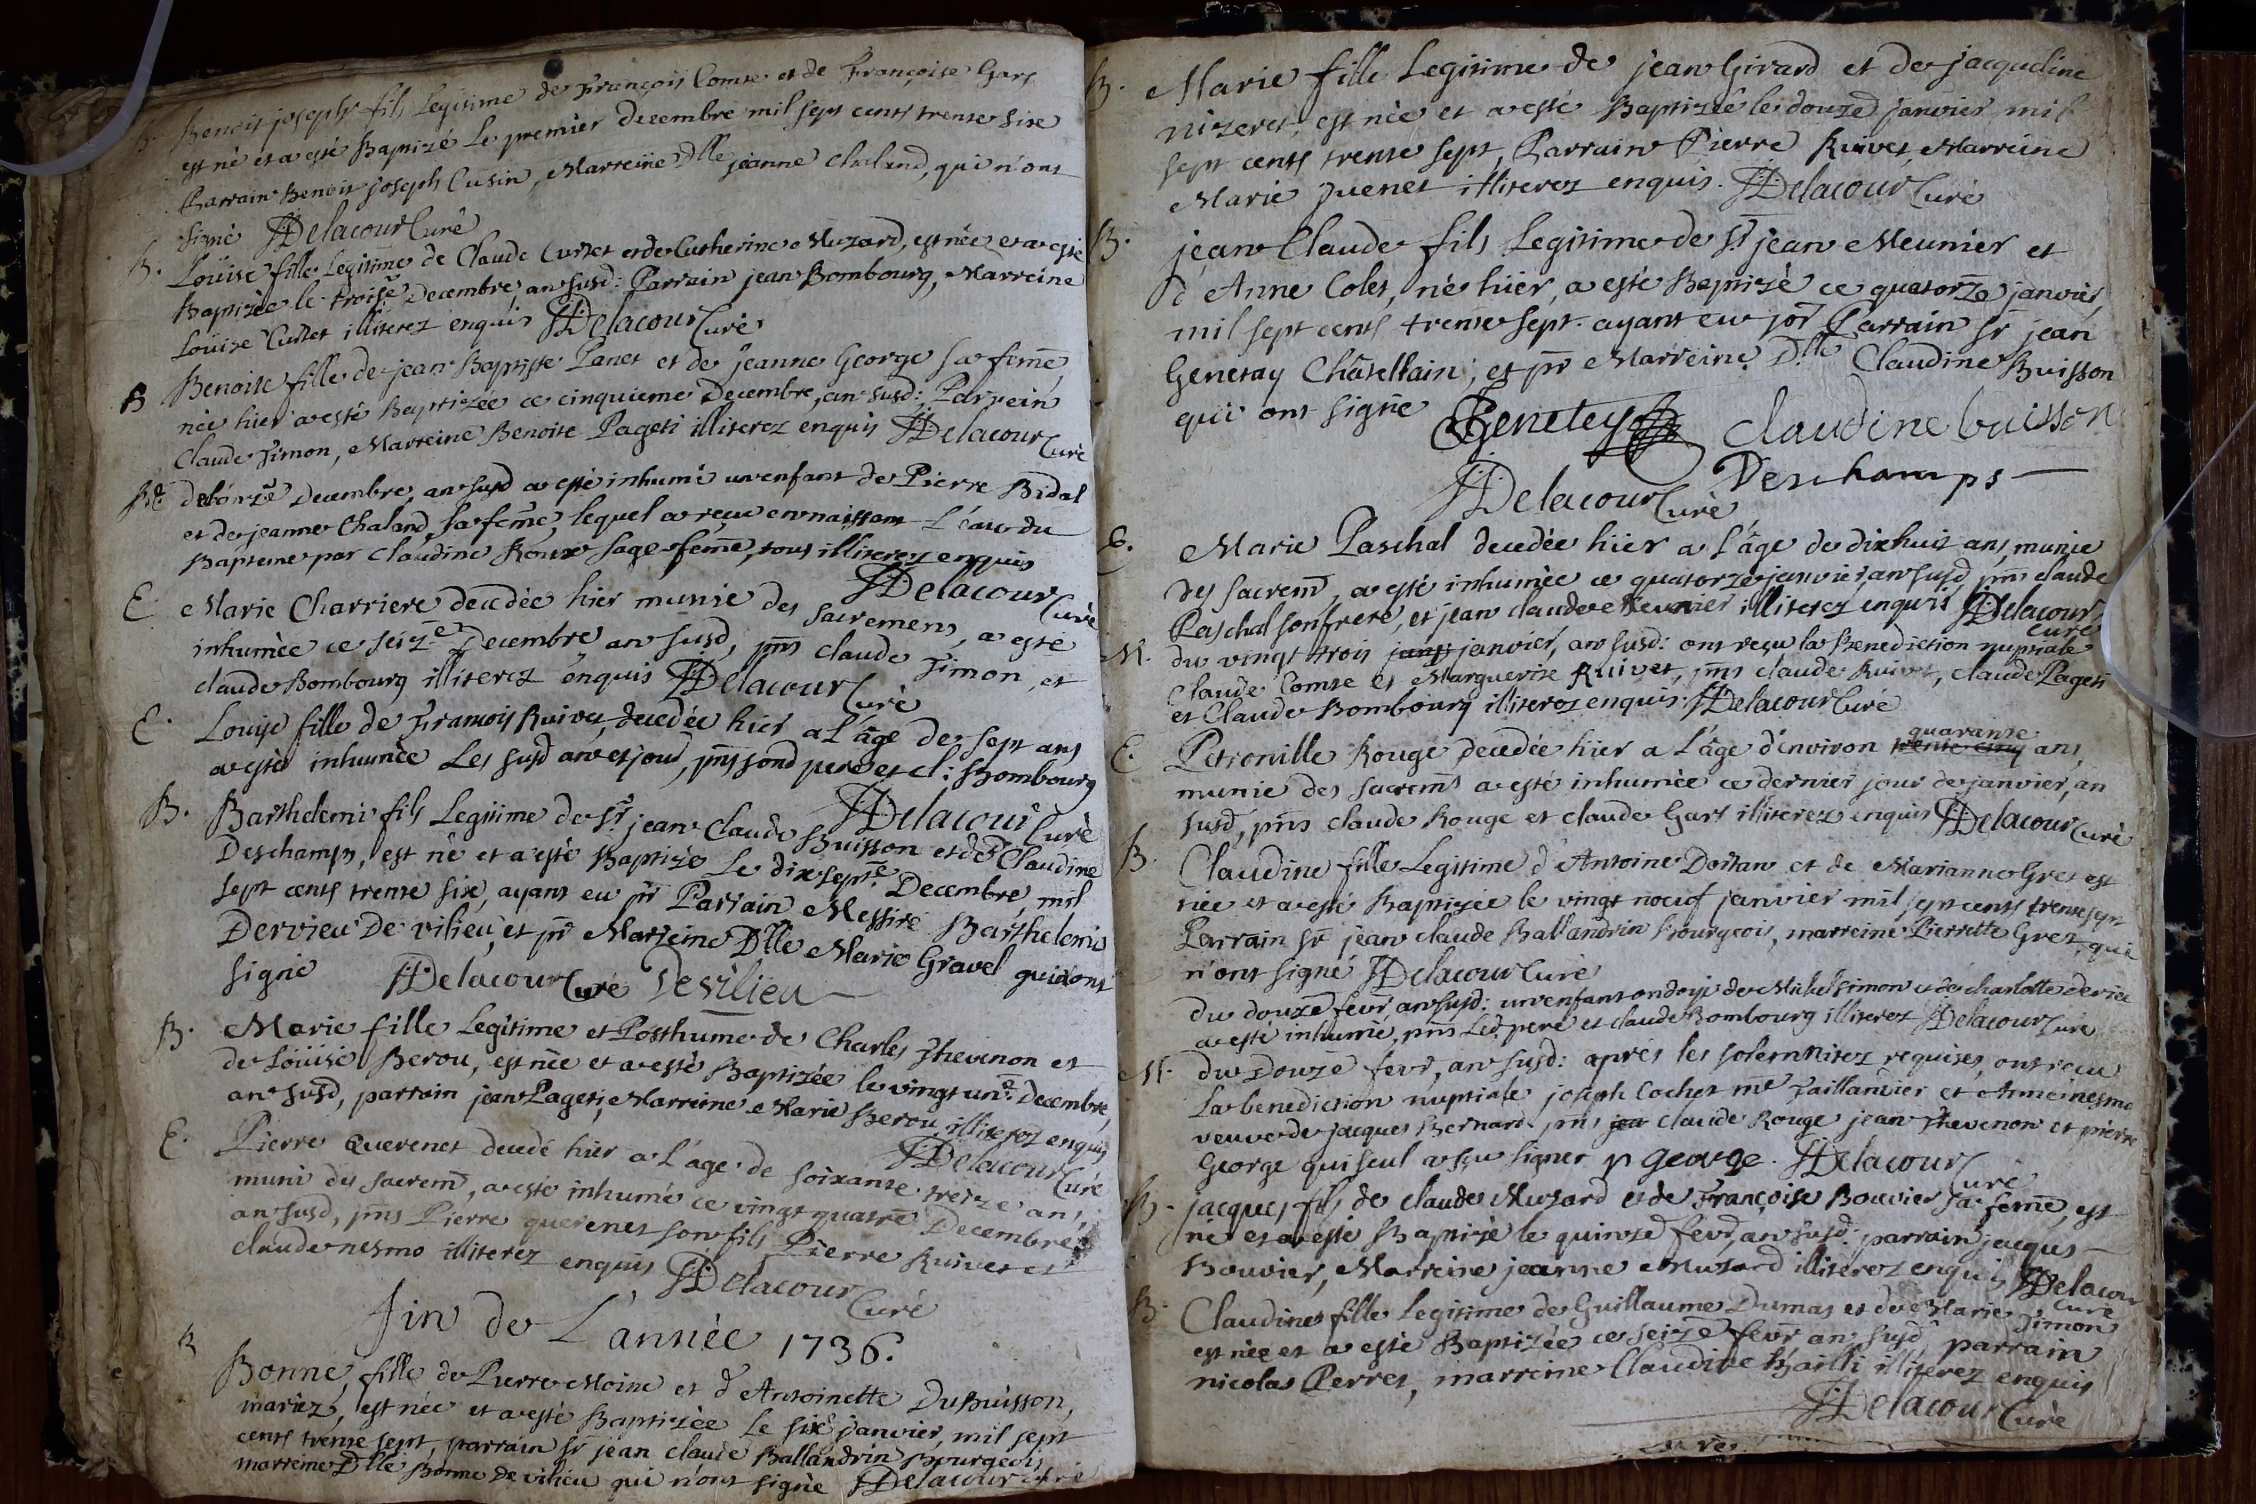 B. Benoit joseph fils Legitime de François Comte et de Françoise Gars
est né et a esté Baptizé Le premier decembre mil sept cents trente six
Parrain Benoit joseph Cusin, Marreine Dlle jeanne Chaland, qui n'ont
signé Delacour Curé
B. Loüise fille Legitime de Claude Curtet et de Catherine Muzard, est née et a esté
Baptizée le troise Decembre, an susd: Parrain jean Bombourg, Marreine
Loüise Curtet illiterez enquis Delacour Curé
B Benoite fille de jean Baptiste Panet et de jeanne George sa feme
née hier a esté Baptizée ce cinquieme Decembre, an susd: Parrein
Claude Simon, Marreine Benoite Pageti illiterez enquis Delacour Curé
decembre, an susd a esté inhumé un enfant de Pierre Bidal
et de jeanne Chaland, sa feme, lequel a reçu en naissant L'eau du
Bapteme par Claudine Roux sage feme, tous illiterez enquis
Delacour Curé
E. Marie Charriere decedée hier munie des sacremens, a esté
inhumée ce seize Decembre an susd, pns claude Simon, et
claude Bombourg illiterez enquis Delacour Curé
E. Louise fille de François Ruivet, decedée hier a L'âge de sept ans
a esté inhumée Les susd an et jour, pns sond pere et cl: Bombourg
Delacour Curé
B. Barthelemi fils Legitime de Sr. jean Claude Buisson et de Claudine
Deschamps, est né et a esté Baptizé Le dix septe Decembre, mil
sept cents trente six, ayant eu pr Parrain Messire Barthelemi
Dervieu De vilieu, et pr Marreine Dlle Marie Gravel qui ont
signé Delacour Curé Devilieu
B. Marie fille Legitime et Posthume de Charles Thevenon et
de Loüise Berou, est née et a esté Baptizée le vingt une Decembre,
an susd, parrain jean Pageti, Marreine Marie Berou illiterez enquis
Delacour Curé
E. Pierre Querenet decedé hier a L'age de soixante treize ans,
muni des sacrem, a esté inhumé ce vingt quatre Decembre
an susd, pns Pierre querenet son fils Pierre Ruivet et
claude nesmo illiterez enquis Delacour Curé
Fin de L'année 1736.
B Bonne, fille de Pierre Moine et d'Antoinette DuBuisson,
mariez, est née et a esté Baptizée Le six janvier, mil sept
cents trente sept, parrain Sr jean claude Ballandrin Bourgeois
marreine Dlle Bonne De vilieu qui n'ont signé Delacour Curé
B. Marie fille Legitime de jean Girard et de jacqueline
nizeret, est née et a esté Baptizée le douze janvier mil
sept cents trente sept, Parrain Pierre Ruivet, Marreine
Marie Juenet illiterez enquis. Delacour Curé
B. jean Claude fils Legitime de Sr jean Meunier et
d'Anne Colet, né hiér, a esté Baptizé ce quatorze janvier
mil sept cents trente sept. ayant eu por Parrain Sr jean
Genetay Châtellain, et pr Marreine Dlle Claudine Buisson
qui ont signé. Genetey Claudine buisson
Deschamps
Delacour Curé
E. Marie Paschal decedée hiér a L'âge de dixhuit ans, munie
des sacrem, a esté inhumée ce quatorze janvier an susd, pns claude
Paschal son frere, et jean claude Meunier illiterez enquis Delacour
Curé
M. du vingt trois janvier, an susd: ont reçu la Benediction nuptiale
Claude Comte et Marguerite Ruivet, pns claude Ruivet, claude Pageti
et Claude Bombourg illiterez enquis Delacour Curé
E. Petronille Rouge decedée hiér a L'âge d'environ trente cinq quarante ans,
munie des sacrems a esté inhumée ce dernier jour de janvier, an
susd, pns claude Rouge et claude Gars illiterez enquis Delacour Curé
B. Claudine fille Legitime d'Antoine Doitan et de Marianne Gret est
née et a esté Baptizée le vingt noeuf janvier mil sept cents trente sept
Parrain Sr jean claude Ballandrin Bourgeois, marreine Pierrette Gret, qui
n'ont signé Delacour Curé
du douze fevr, an susd: un enfant ondoyé de Michel Simon et de charlotte
a esté inhumé, pns Led pere et claude Bombourg illiterez Delacour Curé
M. du Douze fevr, an susd: aprés les solemnitez requises, ont reçu
La benediction nuptiale joseph Cochet me Taillandier et Anne nesmo
veuve de jacques Bernard pns claude Rouge jean Thevenon et pierre
George qui seul a sçu signer p george. Delacour Curé
B. jacques fils de claude Muzard et de Françoise Bouvier sa feme, est
né et a esté Baptizé le quinze fevr, an susd: parrain jacques
Bouvier, Marreine jeanne Muzard illiterez enquis Delacour
Curé
B. Claudine fille Legitime de Guillaume Dumas et de Marie Simon
est née et a esté Baptizée ce seize fevr an susd parrain
nicolas Perret, marreine Claudine Bailli illiterez enquis
Delacour Curé